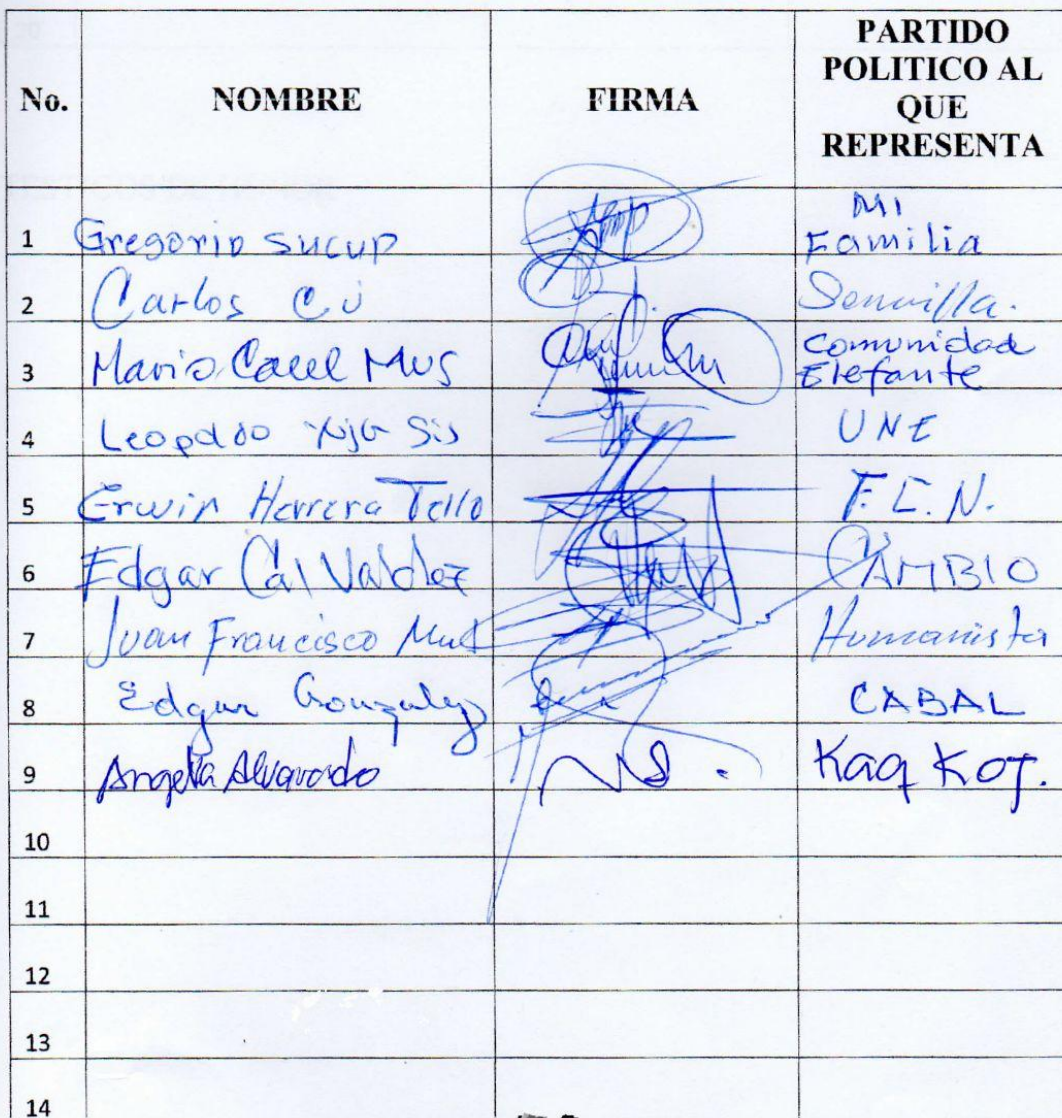 No. NOMBRE FIRMA PARTIDO
POLITICO AL
QUE
REPRESENTA
1 Gregorio Sucup Mi
Familia
2 Carlos Cú Semilla.
3 Mario Mus Comunidad
Elefante
4 Leopoldo Sis UNE
5 Erwin Herrera Tello F.C.N.
6 Edgar Cal Valdez CAMBIO
7 Juan Francisco Humanista
8 Edgar Gonzalez CABAL
9 Angela Alvarado Kaq Koj.
10
11
12
13
14